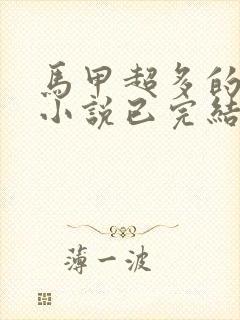 馬甲超多的
小說已完結
薄一波